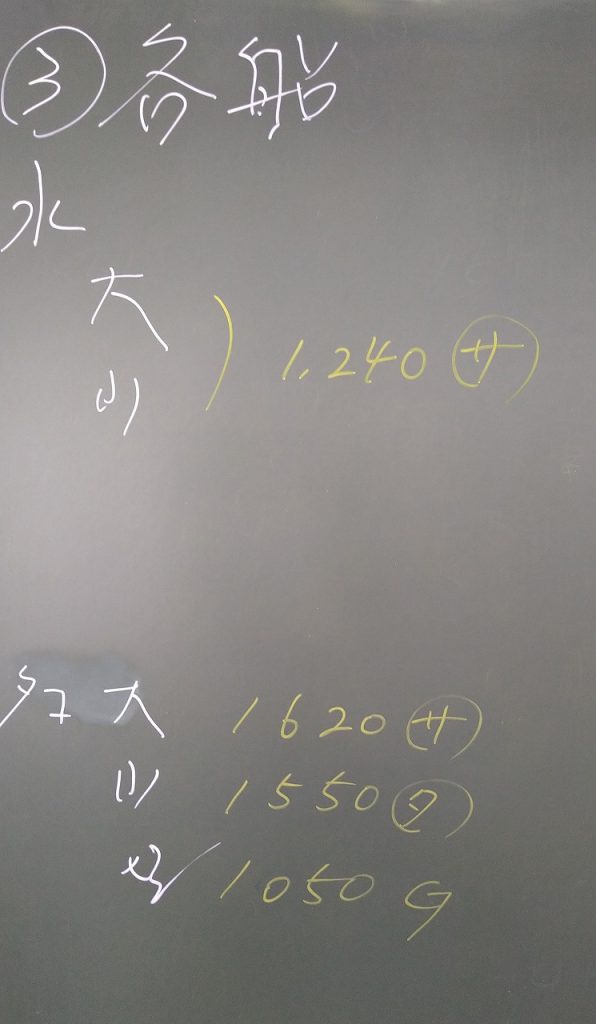 ③各船
水
大
小 ) 1.240 サ
タコ 大 1620 サ
小 1550 ク
1050 G